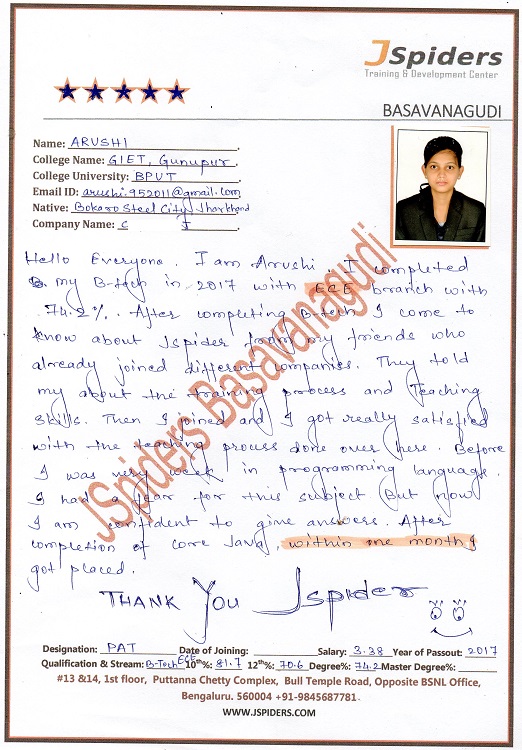 JSpiders
Training & Development Center
BASAVANAGUDI
Name: ARUSHI
College Name: GIET, Gunupur.
College University: BPUT
Email ID: arushi.952011@gmail.com
Native: Bokaro Steel City, Jharkhand
Company Name: C J
Hello Everyone. I am Arushi. I completed
my B-tech in 2017 with ECE branch with
74.2%. After completing B-tech I come to
know about Jspider from my friends who
already joined different companies. They told
my about the training process and Teaching
skills. Then I joined and I got really satisfied
with the teaching process done over here. Before
I was very week in programming language.
I had a fear for this subject. But now
I am confident to give answers. After
completion of core Java, within one month I
got placed.
JSpiders Basavanagudi
THANK YOU Jspider
Designation: PAT Date of Joining: Salary: 3.38 Year of Passout: 2017
Qualification & Stream: B-Tech ECE 10th%: 81.7 12th%: 70.6 Degree%: 74.2 Master Degree%:
#13 &14, 1st floor, Puttanna Chetty Complex, Bull Temple Road, Opposite BSNL Office,
Bengaluru. 560004 +91-9845687781
WWW.JSPIDERS.COM